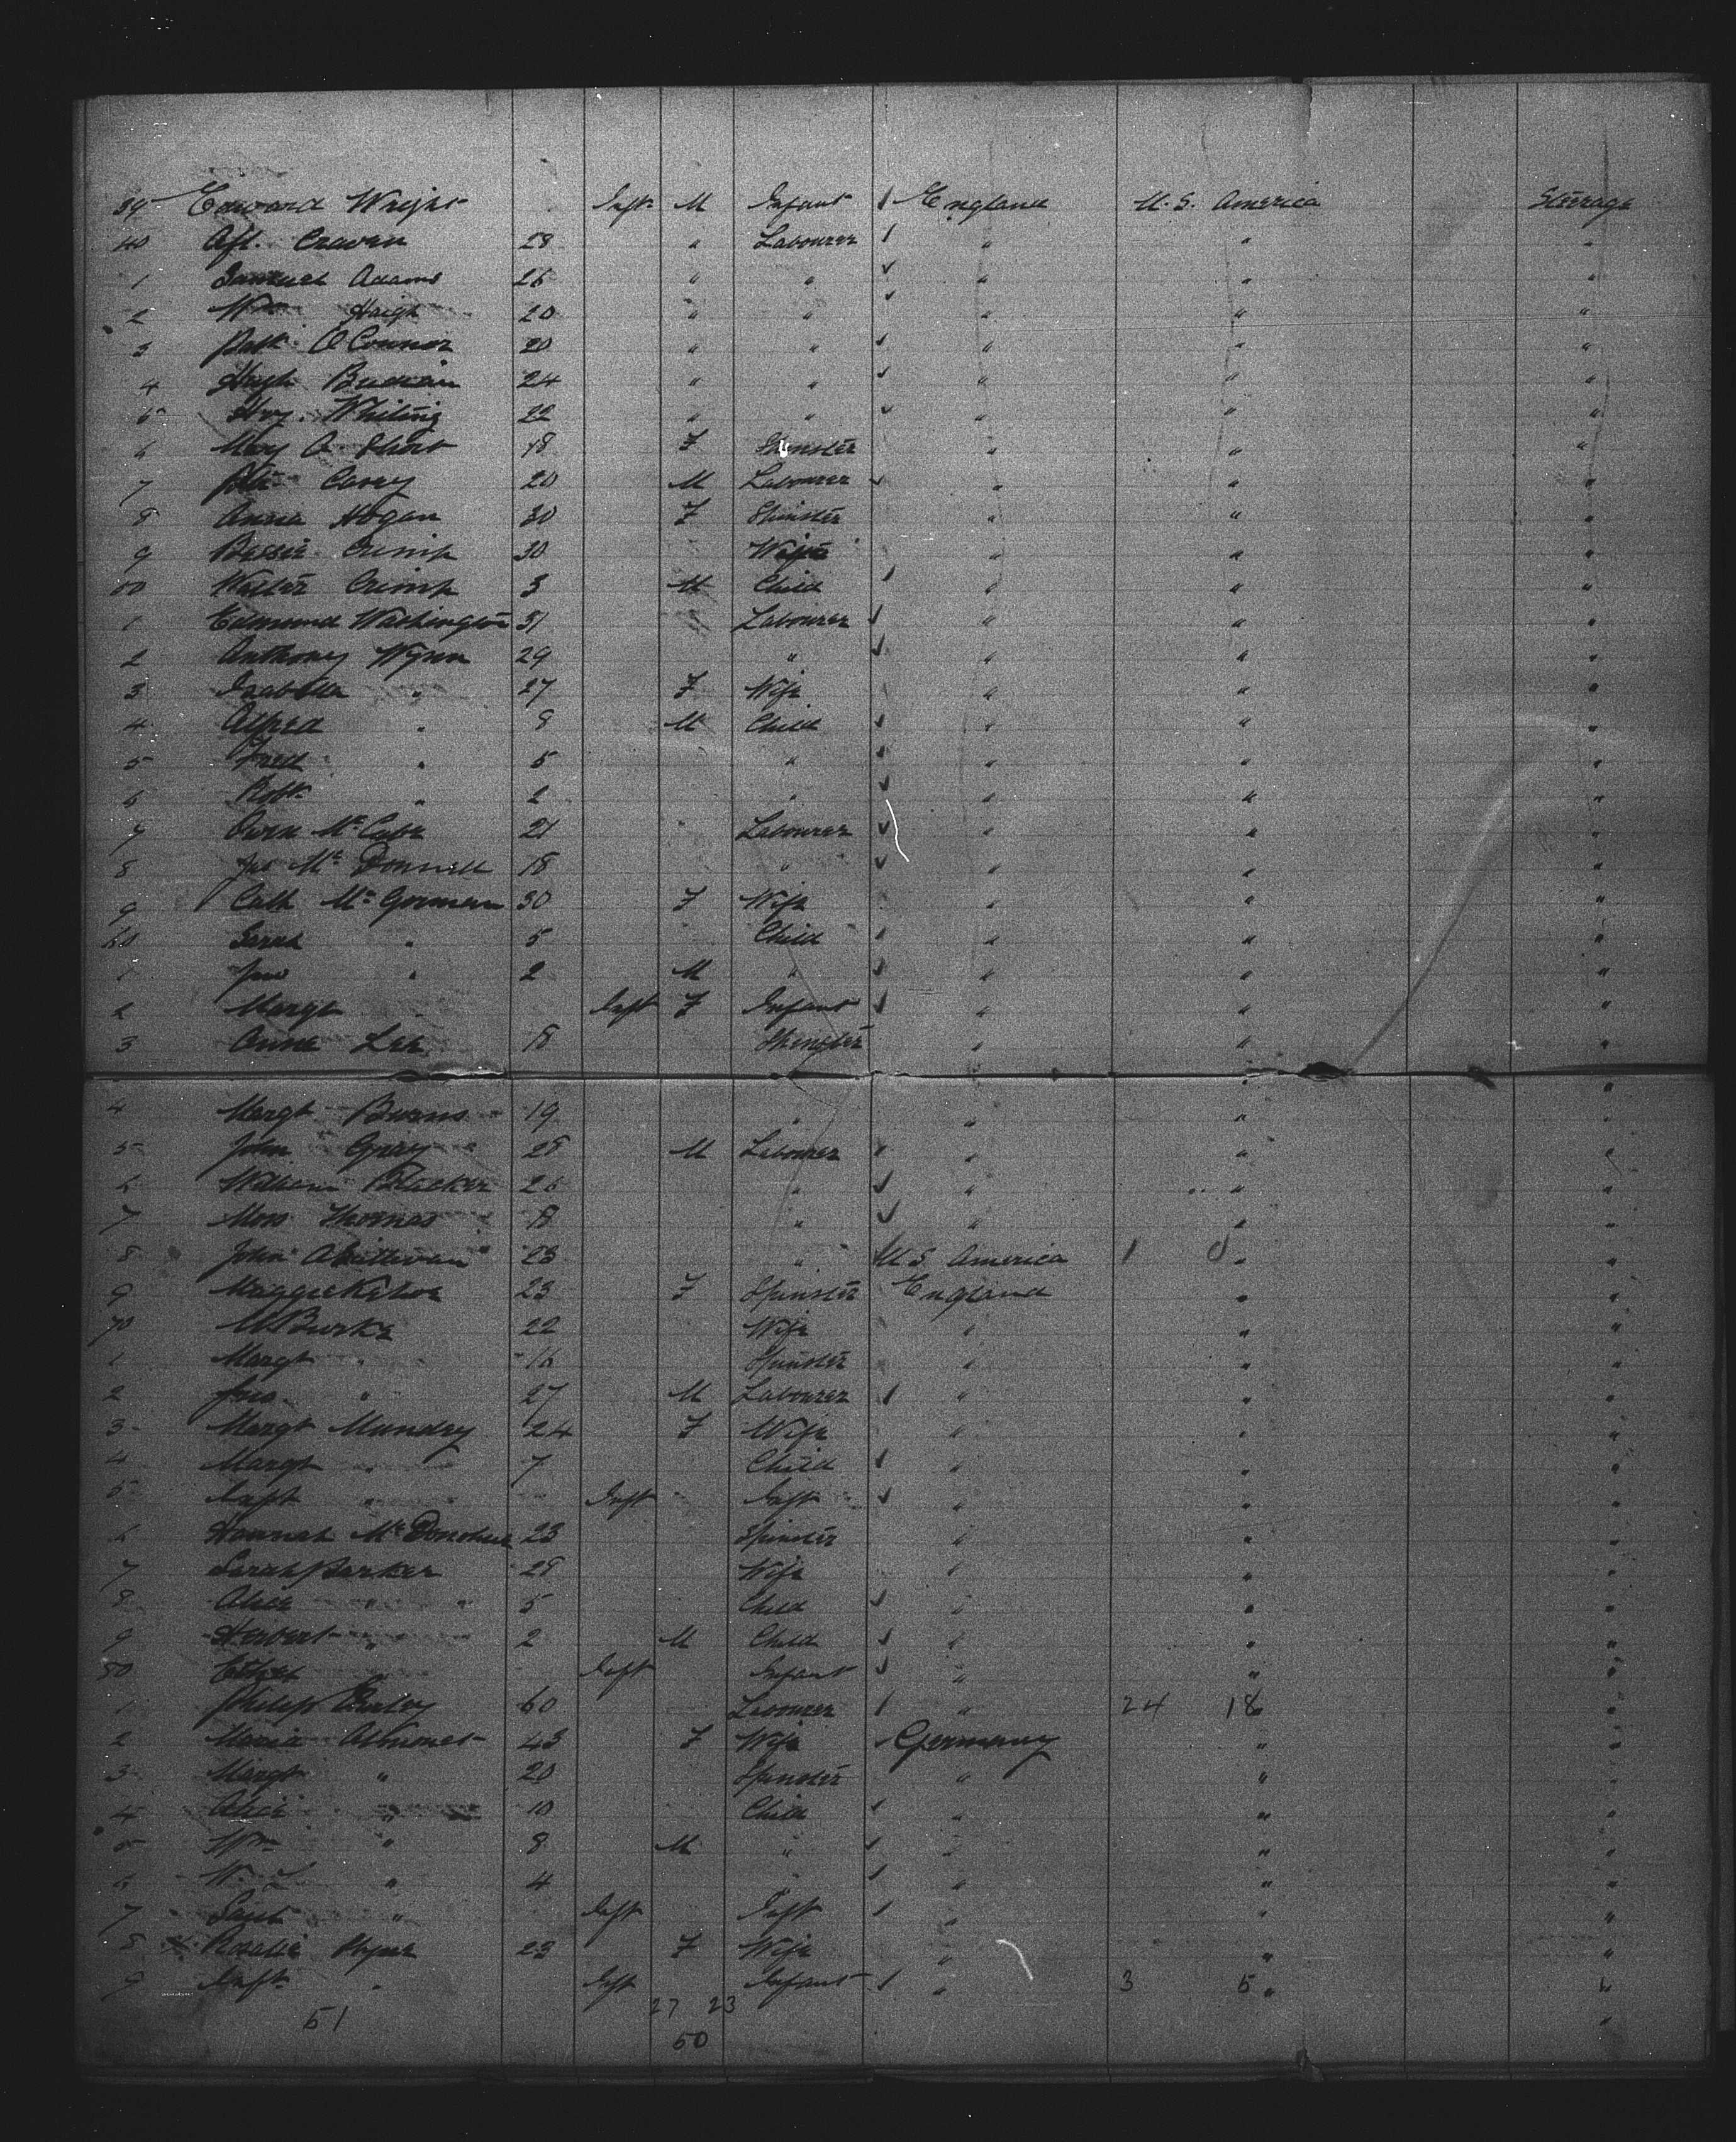 39 Edward Wright Inft M Infant England U.S. America Steerage
40 Craven 28 " Labourer " " "
1 Samuel Adams 26 " " " " "
2 Wm Haigh 20 " " " " "
3 Patk O'Connor 20 " " " " "
4 Hugh 24 " " " " "
5 Hry Whiting 22 " " " " "
6 Mary A. Short 18 F Spinster " " "
7 Carey 20 M Labourer " " "
8 Anna Hogan 30 F Spinster " " "
9 Bessie Crimp 30 Wife " " "
50 Walter Crimp 3 M Child " " "
1 Edmund Washington 31 Labourer " " "
2 Anthony Wynn 29 " " " "
3 Isabella " 27 F Wife " " "
4 Alfred " 8 M Child " " "
5 Fred " 5 " " " "
6 Robt " 2 " " " "
7 Owen McCabe 21 " Labourer " " "
8 Jas McDonnell 18 " " " "
9 Cath McGorman 30 F Wife " " "
60 Sarah " 5 Child " " "
1 Jno " 2 M " " " "
2 Margt Inft F Infant " " "
3 Anne Lee 18 Spinster " " "
4 Margt Burns 19 " " " "
5 John Gray 28 M Labourer " " "
6 William Blacker 26 " " " "
7 Thomas 18 " " " "
8 John 23 " U.S. America 1 "
9 Maggie Kehoe 23 F Spinster England " "
70 M Burke 22 Wife " " "
1 Margt " 16 Spinster " " "
2 Jno " 27 M Labourer " " "
3 Margt Mundey 24 F Wife " " "
4 Margt " 7 Child " " "
5 Inft " Inft Inft " " "
6 Hannah McDonohue 23 Spinster " " "
7 Sarah Barker 28 Wife " " "
8 Alice " 5 Child " " "
9 Herbert " 2 M Child " " "
80 Ethel Inft Infant " " "
1 Philip 60 Labourer " 24 18 "
2 Maria 43 F Wife Germany " "
3 Margt " 20 Spinster " " "
4 Alice " 10 Child " " "
5 Wm " 8 M " " " "
6 W. L " 4 " " " "
7 " Inft Inft " " "
8 Rosalie 23 F Wife " " "
9 Inft " Inft Infant " 3 5 " "
51 27 23
50